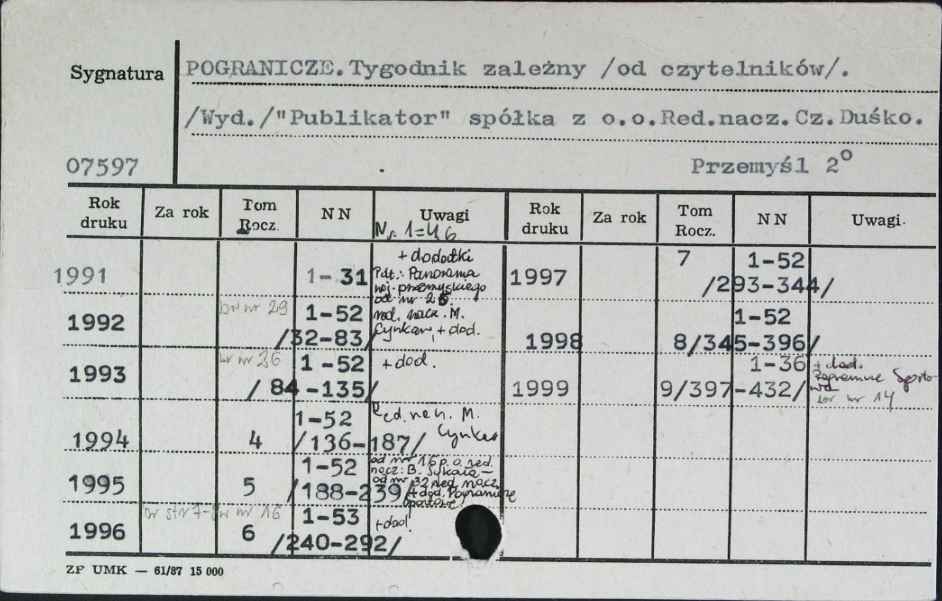 Sygnatura
POGRANICZE.Tygodnik zależny /od czytelników/.
/Wyd./"Publikator" spółka z o.o.Red.nacz.Cz.Duśko.
07597
Przemyśl 2°
Rok druku Za rok Tom Rocz. NN Uwagi Rok druku Za rok Tom Rocz. NN Uwagi.
Nr 1-46
1991 1-31 + dodatki
Pdt.: Panorama
woj. przemyskiego
od nr 26.
1992 1-52 red. nacz. M.
/32-83/ + dod.
1993 1-52 + dod.
/84-135/
1994 4 1-52 Red. nacz. M.
/136-187/
1995 5 1-52 od nr 16 p.o. red.
nacz: B. Sykała -
od nr 32 red. nacz.
/188-239/ + dod. Pogranicze
Sportowe
1996 6 1-53 + dod.
/240-292/
1997 7 1-52
/293-344/
1998 8 1-52
/345-396/
1999 9 1-36 + dod.
/397-432/ Pogranicze Sporto-
wa
nr 14
ZP UMK — 61/87 15 000